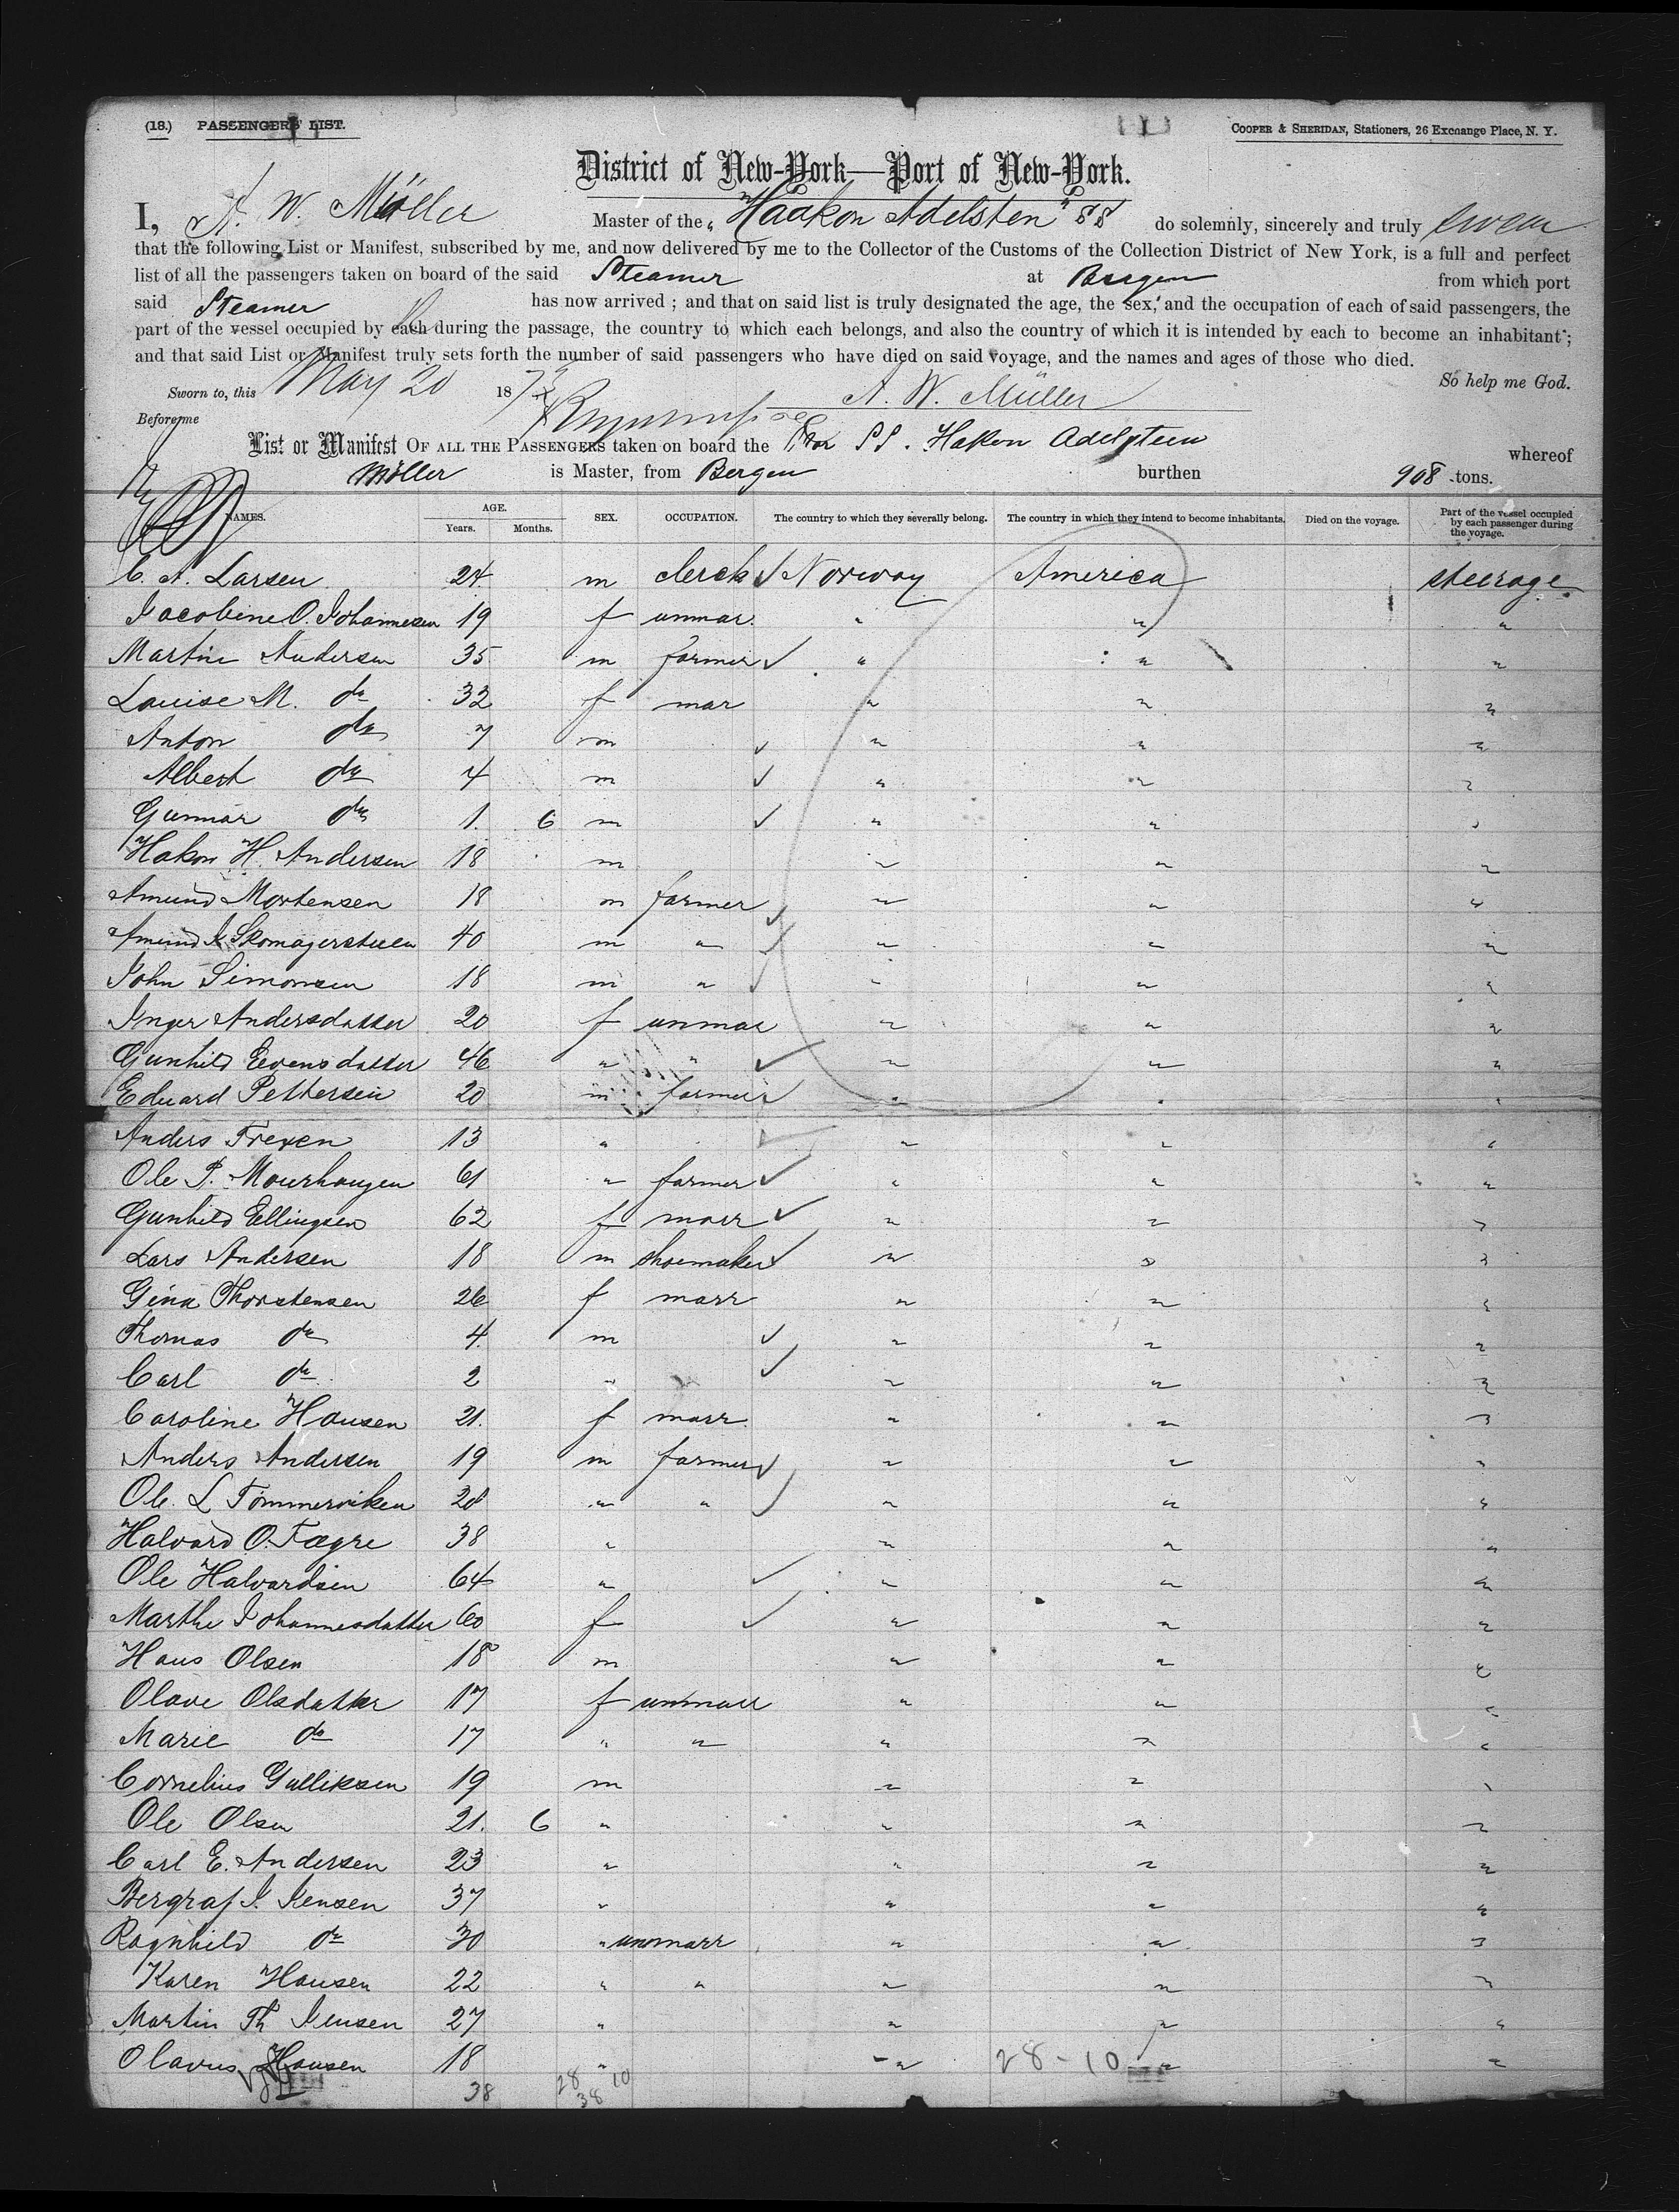 (18.) PASSENGERS' LIST. COOPER & SHERIDAN, Stationers, 26 Exchange Place, N. Y.
District of New-York—Port of New-York.
I, A. W. Müller Master of the "Haakon Adelsten" SS do solemnly, sincerely and truly swear
that the following List or Manifest, subscribed by me, and now delivered by me to the Collector of the Customs of the Collection District of New York, is a full and perfect
list of all the passengers taken on board of the said Steamer at Bergen from which port
said Steamer has now arrived ; and that on said list is truly designated the age, the sex, and the occupation of each of said passengers, the
part of the vessel occupied by each during the passage, the country to which each belongs, and also the country of which it is intended by each to become an inhabitant ;
and that said List or Manifest truly sets forth the number of said passengers who have died on said voyage, and the names and ages of those who died.
So help me God.
Sworn to, this May 20 187 A. W. Müller
Before me
List or Manifest OF ALL THE PASSENGERS taken on board the Nor SS. Hakon Adelsteen whereof
Möller is Master, from Bergen burthen 908 tons.
NAMES. AGE. Years. Months. SEX. OCCUPATION. The country to which they severally belong. The country in which they intend to become inhabitants. Died on the voyage. Part of the vessel occupied by each passenger during the voyage.
C. A. Larsen 24 m clerck Norway America steerage
Jacobine O. Johannesen 19 f unmar. " " "
Martin Andersen 35 m farmer " " "
Louise M. do 32 f mar " " "
Anton do 7 m " " "
Albert do 4 m " " "
Gunnar do 1. 6 m " " "
Hakon H. Andersen 18 m " " "
Amund Mortensen 18 m farmer " " "
Amund J. Skomagersteen 40 m " " " "
John Simonsen 18 m " " " "
Inger Andersdatter 20 f unmar " " "
Gunhild Evensdatter 46 " " " " "
Eduard Pettersen 20 m farmer " " "
Anders Trexen 13 " " " "
Ole P. Mourhaugen 61 " farmer " " "
Gunhild Ellingsen 62 f marr " " "
Lars Andersen 18 m shoemaker " " "
Gina Thorstensen 26 f marr " " "
Thomas do 4. m " " "
Carl do 2 " " " "
Caroline Hansen 21. f marr. " " "
Anders Andersen 19 m farmer " " "
Ole L Tömmerviken 28 " " " " "
Halvard O. Fægre 38 " " " "
Ole Halvardsen 64 " " " "
Marthe Johannesdatter 60 f " " "
Hans Olsen 18 m " " "
Olave Olsdatter 17 f unmarr " " "
Marie do 17 " " " " "
Cornelius Gulliksen 19 m " " "
Ole Olsen 21. 6 " " " "
Carl E. Andersen 23 " " " "
Bergraf J. Jensen 37 " " " "
Ragnhild do 30 " unmarr " " "
Karen Hansen 22 " " " " "
Martin Th Jensen 27 " " " "
Olavus Hansen 18 " " 28-10 " "
38 28 10
38